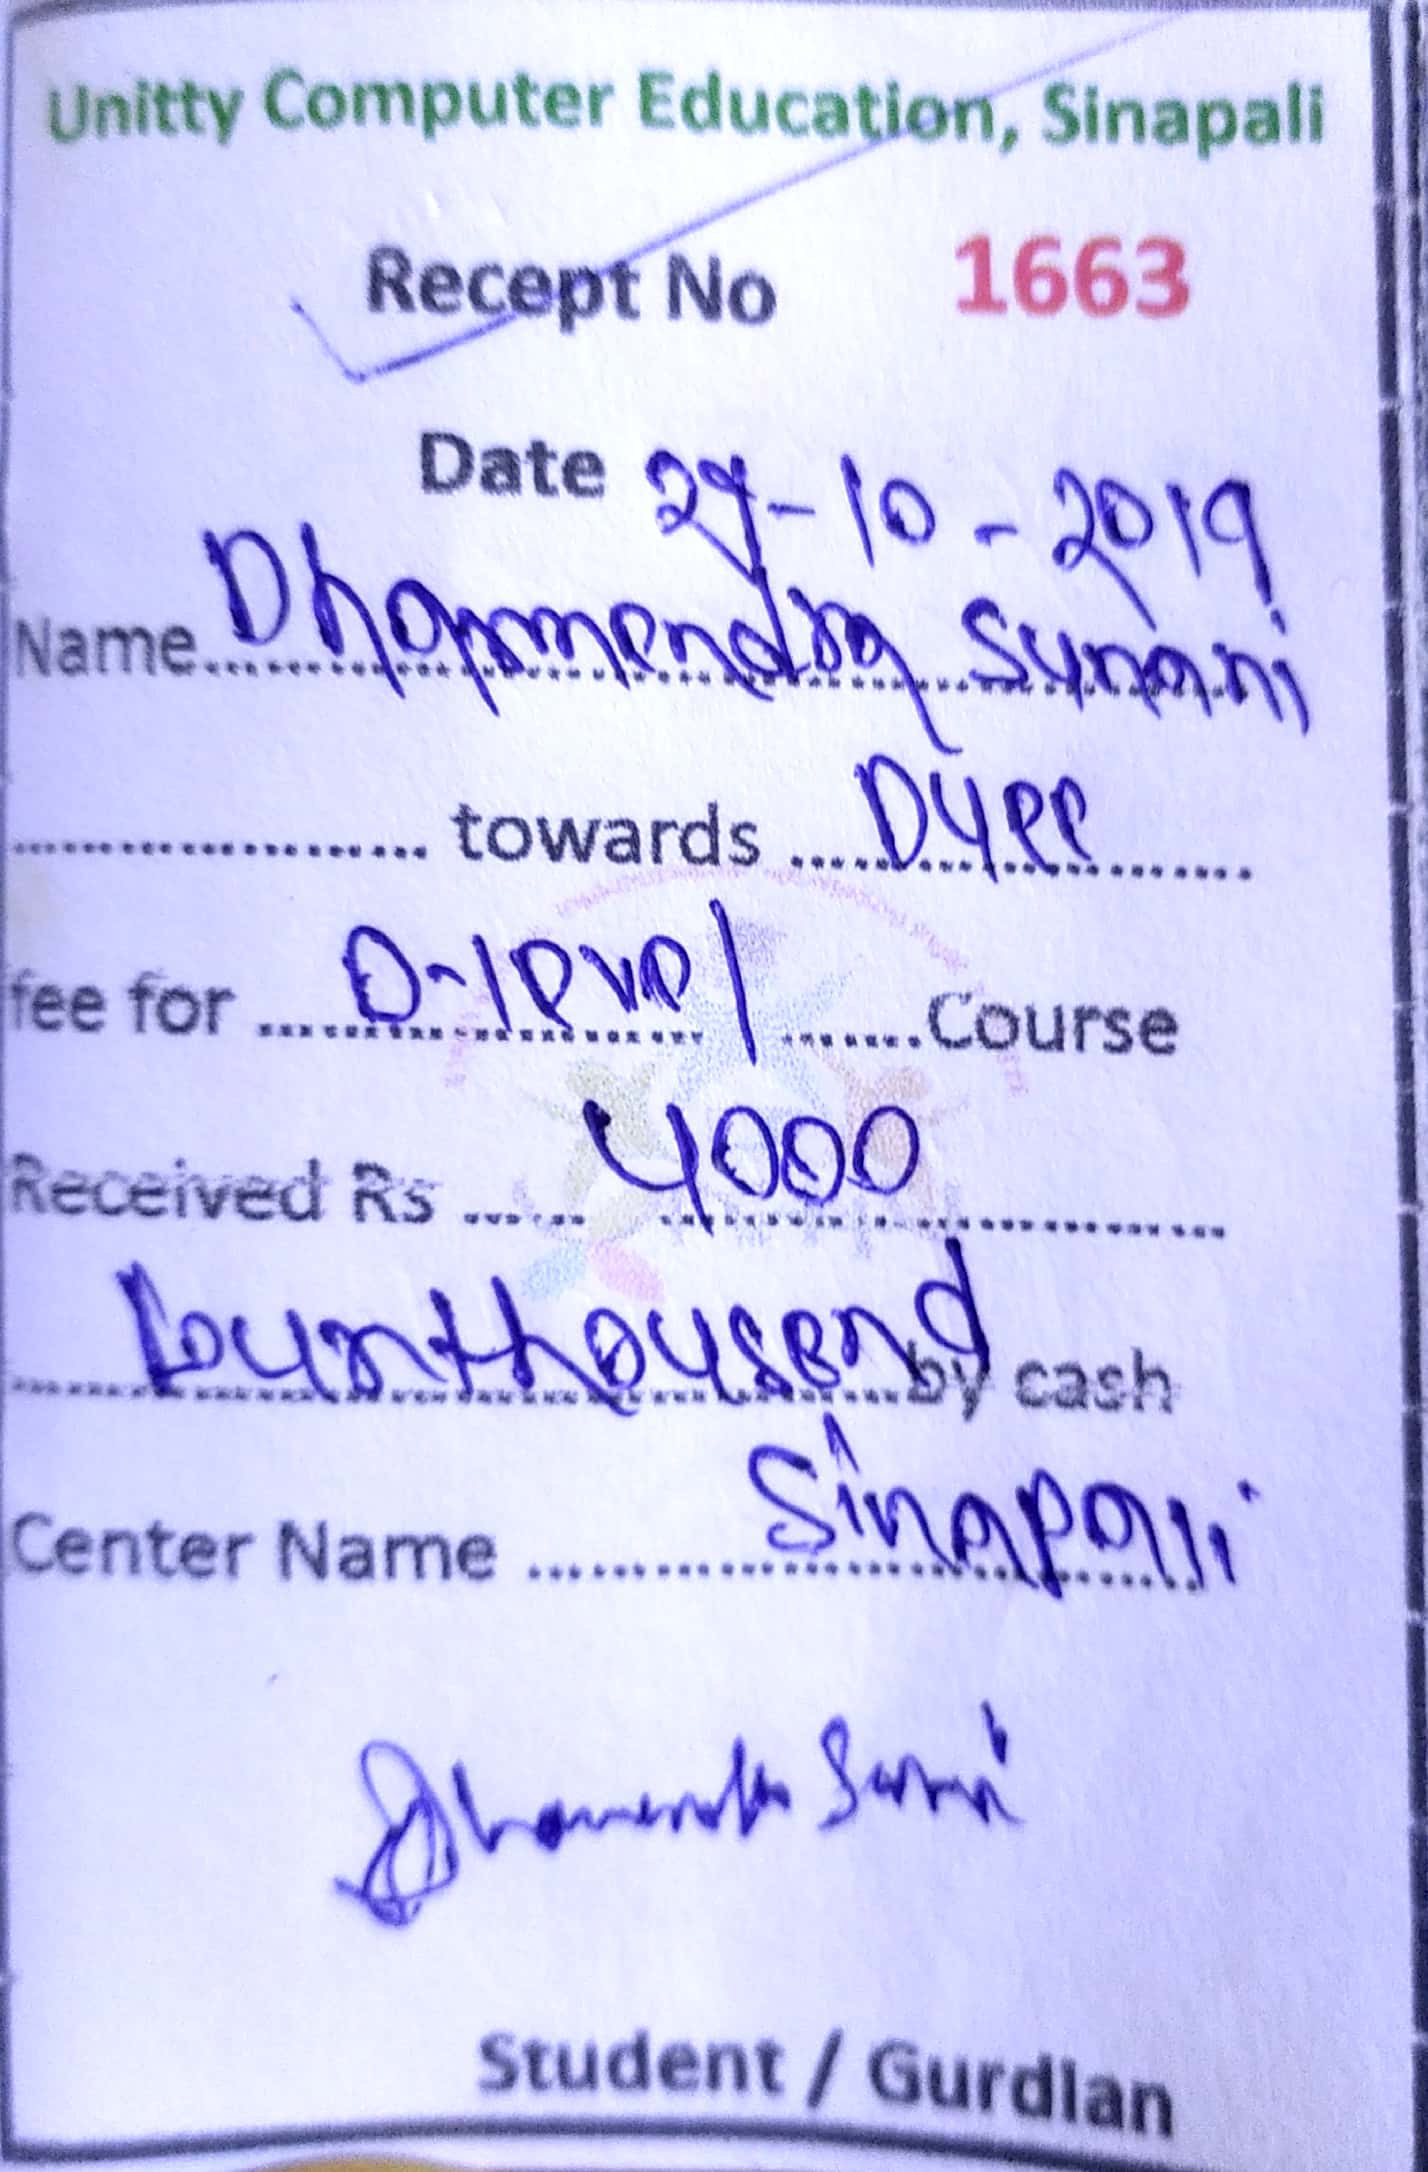 Unitty Computer Education, Sinapali
Recept No 1663
Date 29-10-2019
Name Dharmendra Sunani
towards Duee
fee for O-level Course
Received Rs 4000
fourthousend by cash
Center Name Sinapali
Student / Gurdian